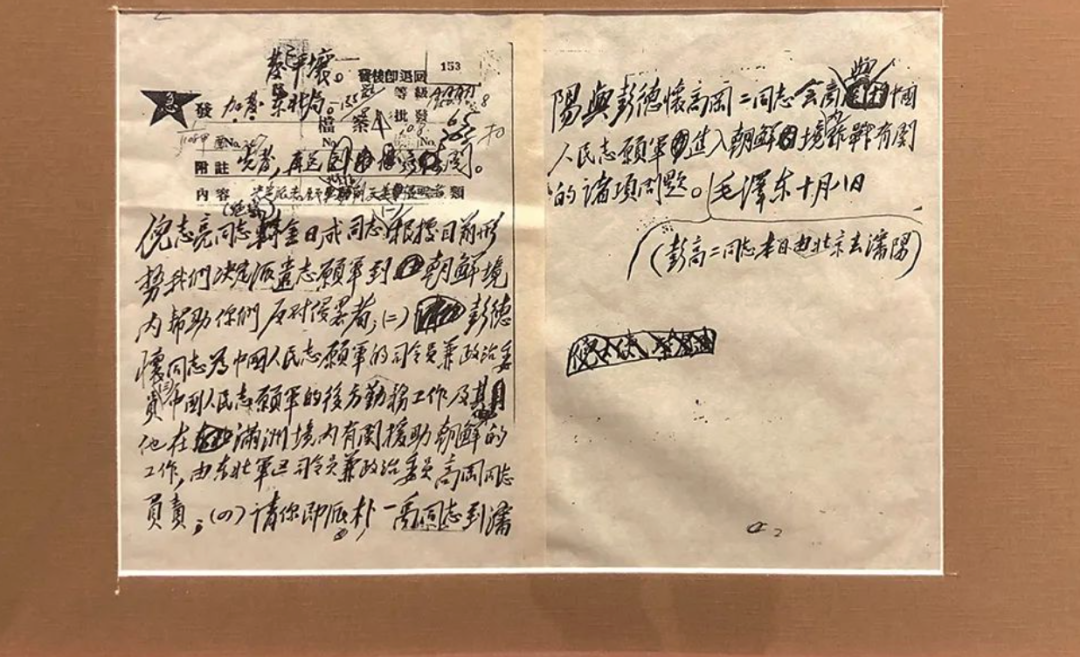 發平壤。
發後即退回
153
等級
急
發 加發 東北局。
檔案
批發
No.
附註
內容
類
倪志亮同志轉金日成同志 根據目前形
勢我們決定派遣志願軍到朝鮮境
內幫助你們反對侵畧者；(二) 彭德
懷同志為中國人民志願軍的司令員兼政治委
員(三)中國人民志願軍的後方勤務工作及其
他在滿洲境內有関援助朝鮮的
工作，由东北軍区司令員兼政治委員高岡同志
員責；(四)請你即派朴一禹同志到瀋
陽與彭德懷高岡二同志会商與中國
人民志願軍進入朝鮮境作戰有関
的诸項問題。毛澤东十月八日
(彭高二同志本日由北京去瀋陽)